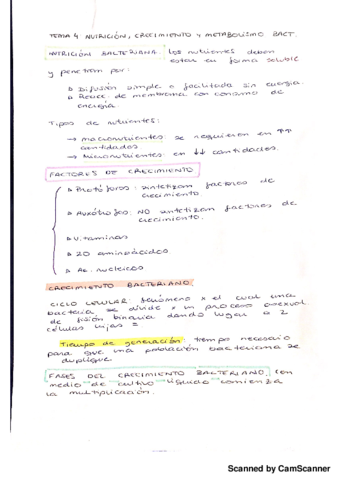 TEMA 4. NUTRICIÓN, CRECIMIENTO Y METABOLISMO BACT.
NUTRICIÓN BACTERIANA Los nutrientes deben
estar en forma soluble
y penetran por:
Difusión simple o facilitada sin energía.
de membrana con consumo de
energía.
Tipos de nutrientes:
→ macronutrientes: se requieren en ↑↑
cantidades.
→ Micronutrientes: en ↓↓ cantidades.
FACTORES DE CRECIMIENTO
Protótrofos: sintetizan factores de
crecimiento
Auxótrofos: NO sintetizan factores de
crecimiento.
Vitaminas
20 aminoácidos
Ac. nucleicos
CRECIMIENTO BACTERIANO
CICLO CELULAR: fenómeno x el cual una
bacteria se divide x un proceso asexual
de fisión binaria dando lugar a 2
células hijas =
Tiempo de generación: tiempo necesario
para que una población bacteriana se
duplique
FASES DEL CRECIMIENTO BACTERIANO. En
medio de cultivo líquido comienza
la multiplicación.
Scanned by CamScanner